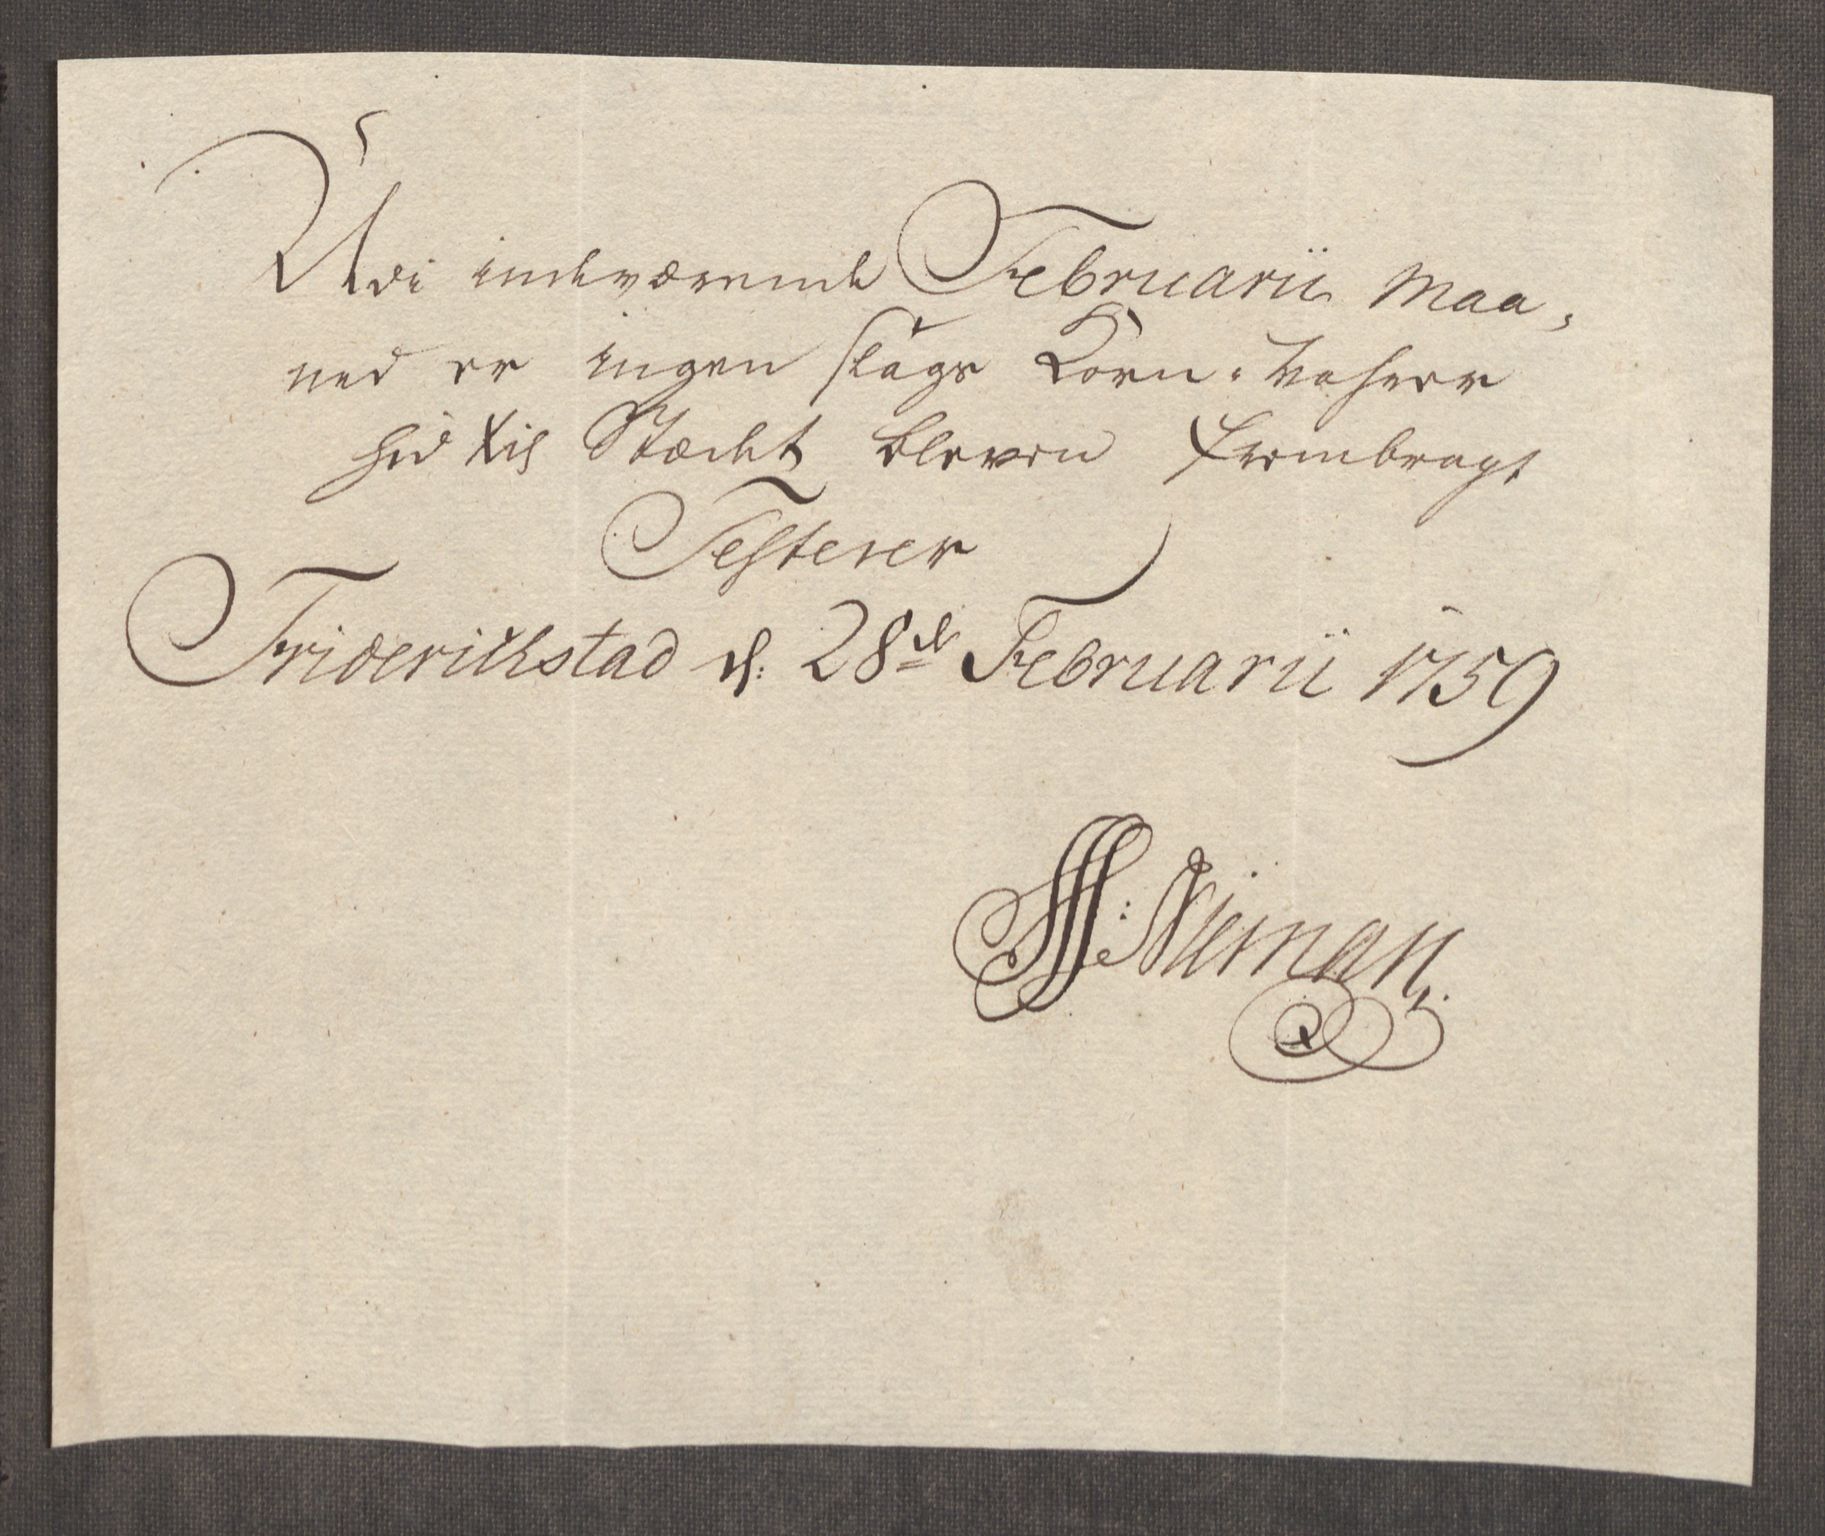 Udi indeværende Februarii Maa-
ned er ingen slags Korn-Vahrer
hid til Stædet bleven frembragt
Testerer
Friderichstad d: 28de Februarii 1759
Niiman